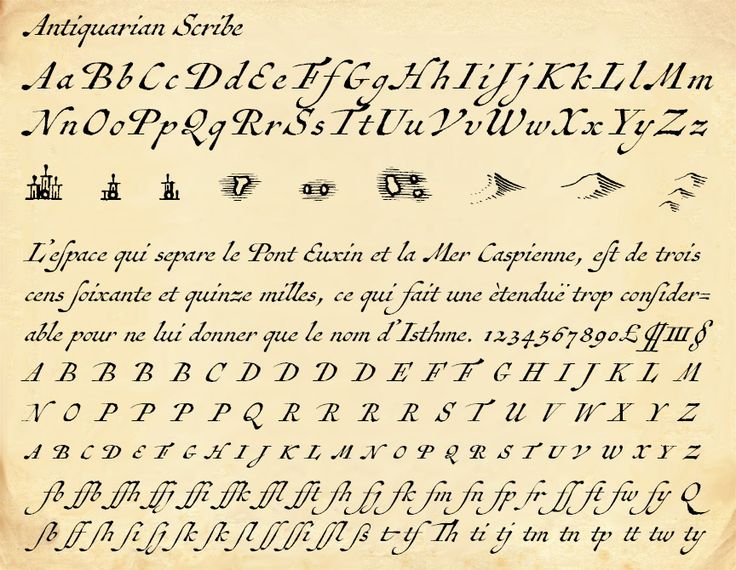 Antiquarian Scribe
Aa Bb Cc Dd Ee Ff Gg Hh Ii Jj Kk Ll Mm
Nn Oo Pp Qq Rr Ss Tt Uu Vv Ww Xx Yy Zz
L'eſpace qui separe le Pont Euxin et la Mer Caspienne, eſt de trois
cens ſoixante et quinze milles, ce qui fait une ètenduë trop conſider=
able pour ne lui donner que le nom d'Isthme. 1234567890£¶III§
A B B B B C D D D D E F F G H I J K L M
N O P P P P Q R R R R S T U V W X Y Z
A B C D E F G H I J K L M N O P Q R S T U V W X Y Z
fb ffb ffh ffj ffi ffk ffl fft fh fj fk fm fn fp fr ft fw fy Q
ſb ſh ſi ſj ſk ſl ſſi ſſl ß tf Th ti tj tm tn tp tt tw ty